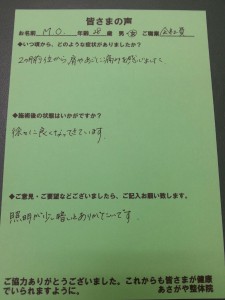 皆さまの声
お名前 M.O. 年齢 28 歳 男・女 ご職業 会社員
◆いつ頃から、どのような症状がありましたか？
2ヵ月前位から肩やあごに痛みを感じました
◆施術後の状態はいかがですか？
徐々に良くなってきています。
◆ご意見・ご要望などございましたら、ご記入お願い致します。
照明が少し暗いとありがたいです。
ご協力ありがとうございました。これからも皆さまが健康
でいられますように。 あさがや整体院